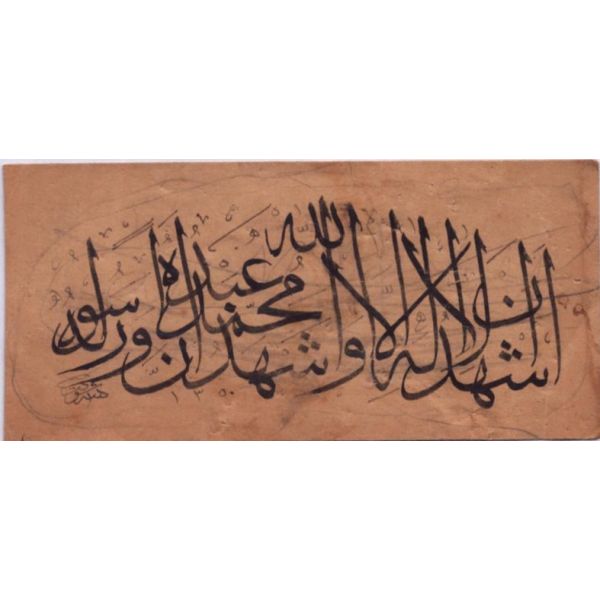 اشهد ان لا اله الا الله واشهد ان محمدا عبده ورسوله
١٣٥٠